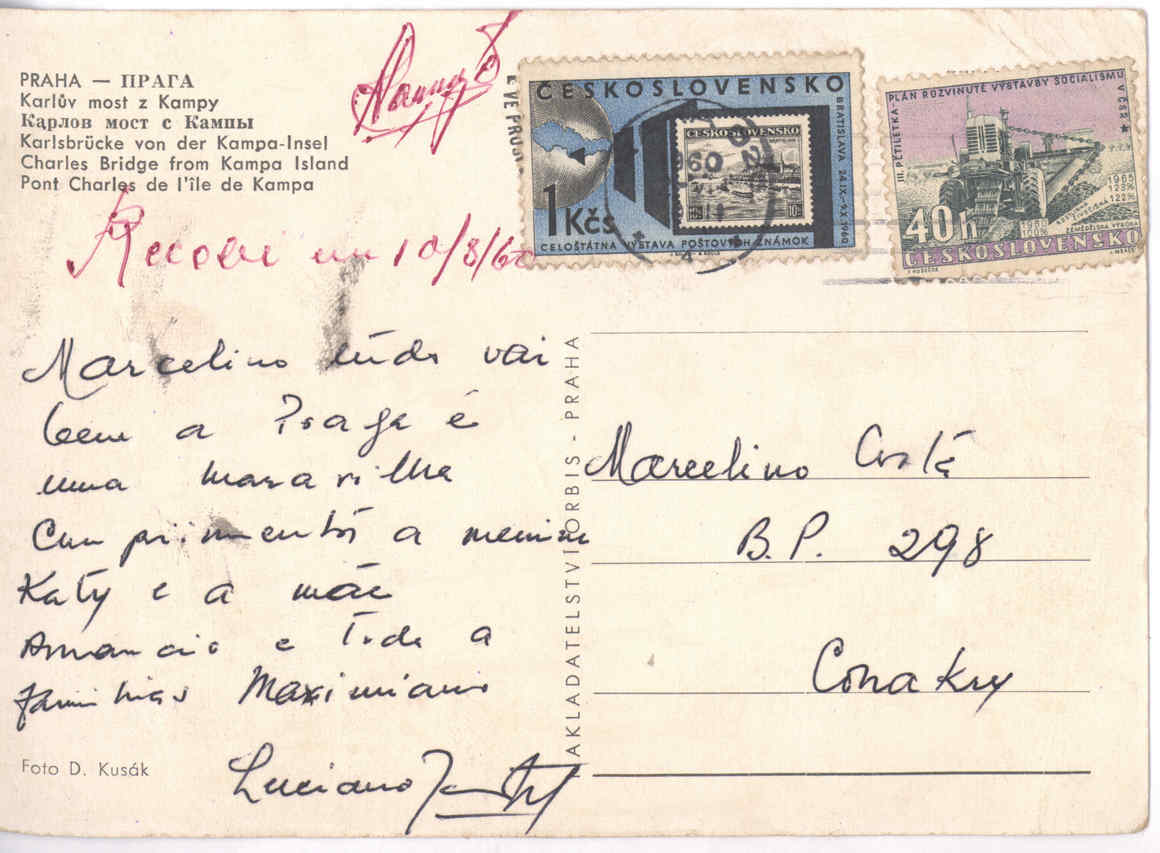 PRAHA — ПРАГА
Karlův most z Kampy
Карлов мост с Кампы
Karlsbrücke von der Kampa-Insel
Charles Bridge from Kampa Island
Pont Charles de l'île de Kampa
ČESKOSLOVENSKO
ČESKOSLOVENSKO
1 Kčs
BRATISLAVA 24.IX.-9.X.1960
CELOŠTÁTNA VÝSTAVA POŠTOVÝCH ZNÁMOK
III. PĚTILETKA PLÁN ROZVINUTÉ VÝSTAVBY SOCIALISMU V ČSR
1965
40h
ČESKOSLOVENSKO
em 10/8/60
Marcelino tudo vai
bem a Praga é
uma maravilha
Cumprimentos a menina
Katy e a mãe
Amancio e Toda a
familias Maximiano
Luciano
Foto D. Kusák
NAKLADATELSTVÍ ORBIS - PRAHA
Marcelino Costa
B.P. 298
Conakry